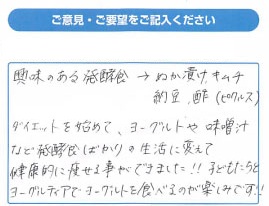 ご意見・ご要望をご記入ください
興味のある発酵食 → ぬか漬け、キムチ
納豆、酢(ピクルス)
ダイエットを始めて、ヨーグルトや味噌汁
など発酵食ばかりの生活に変えて
健康的に痩せる事ができました!! 子どもたちと
ヨーグルティアでヨーグルトを食べるのが楽しみです!!